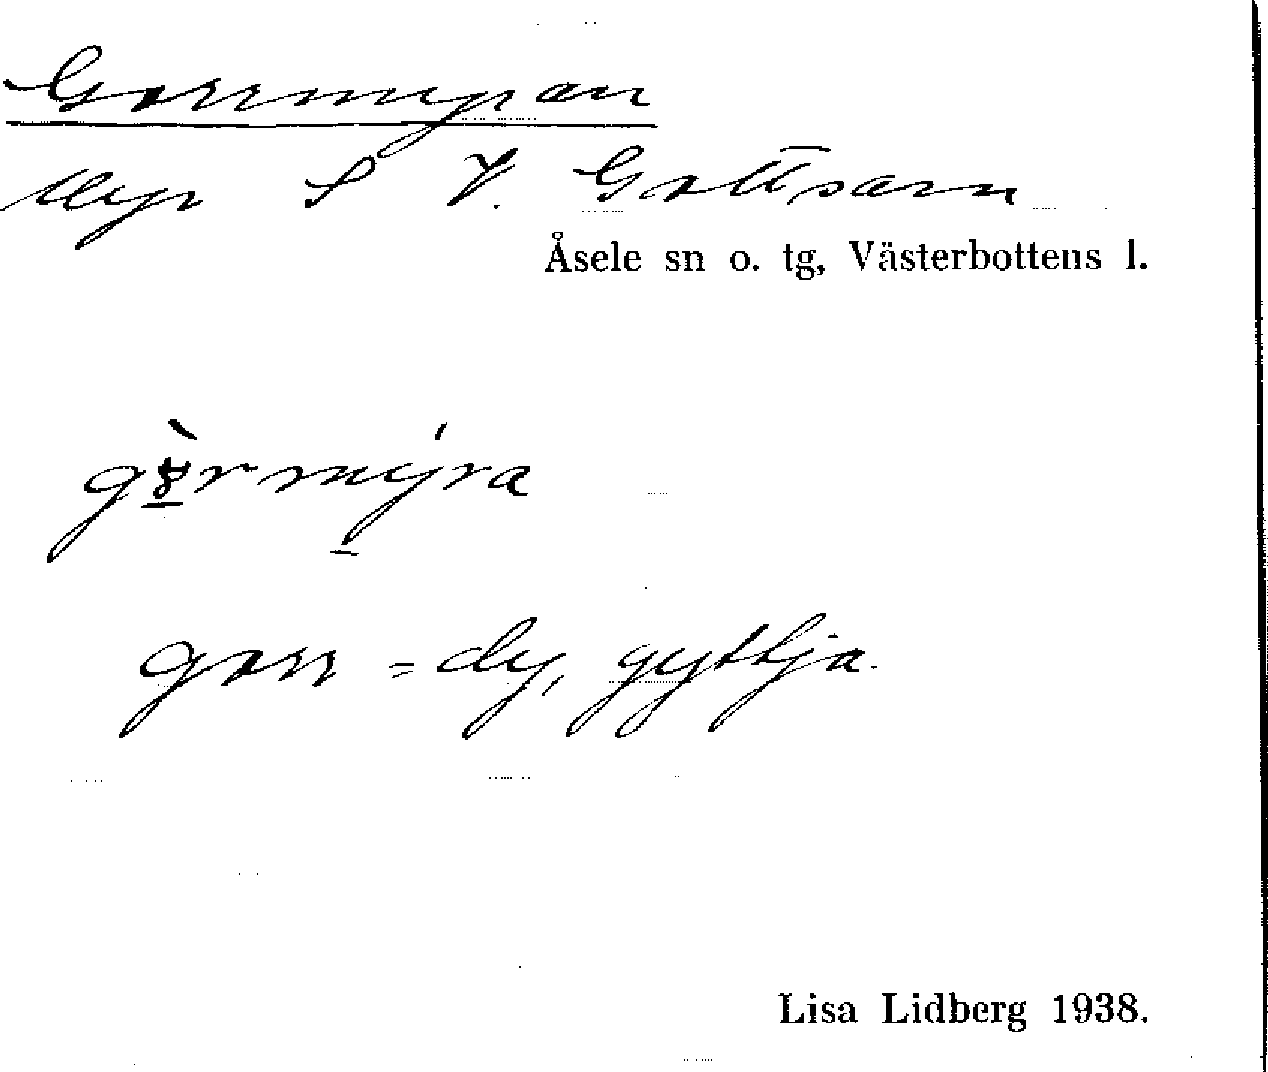 Gorrmyran
Myr S V. Gottsarn
Åsele sn o. tg, Västerbottens l.
gorr = dy, gyttja.
Lisa Lidberg 1938.